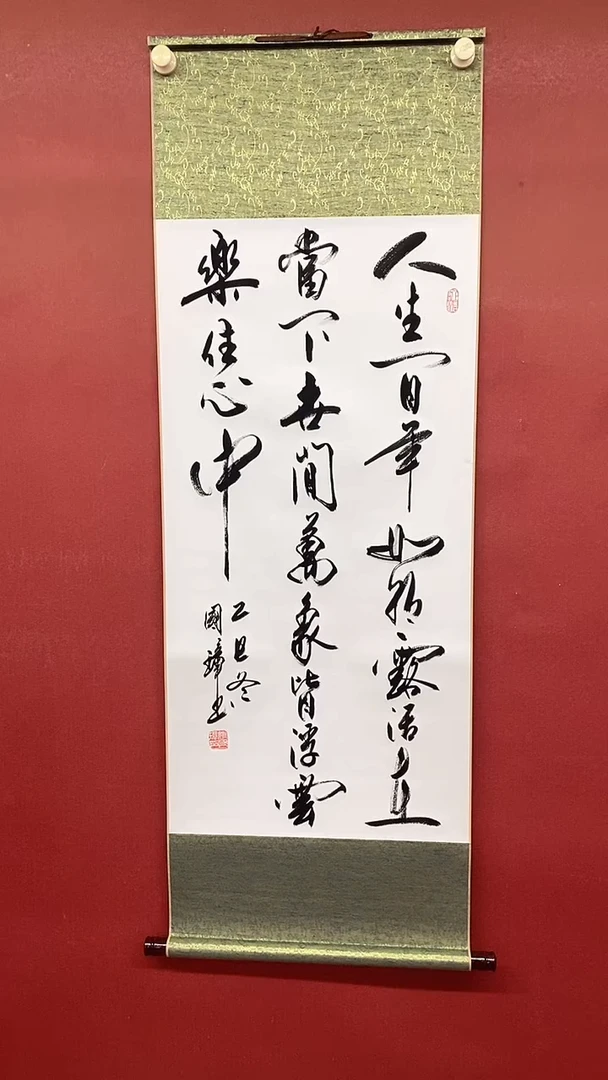 人生百年如朝露活在
當下世間萬象皆浮雲
樂住心中
乙巳冬
國璋書